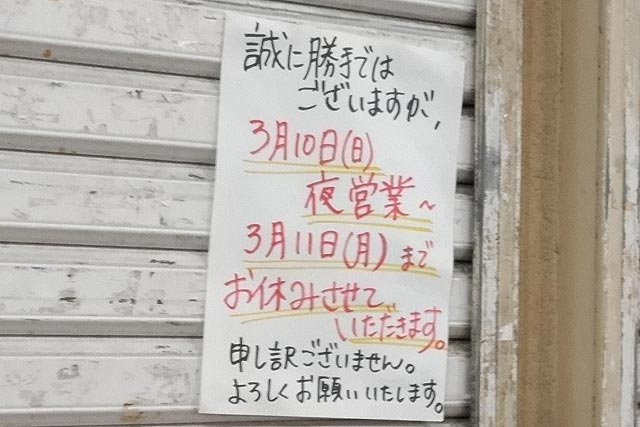 誠に勝手では
ございますが、
3月10日(日)
夜営業~
3月11日(月)まで
お休みさせて
いただきます。
申し訳ございません。
よろしくお願いいたします。